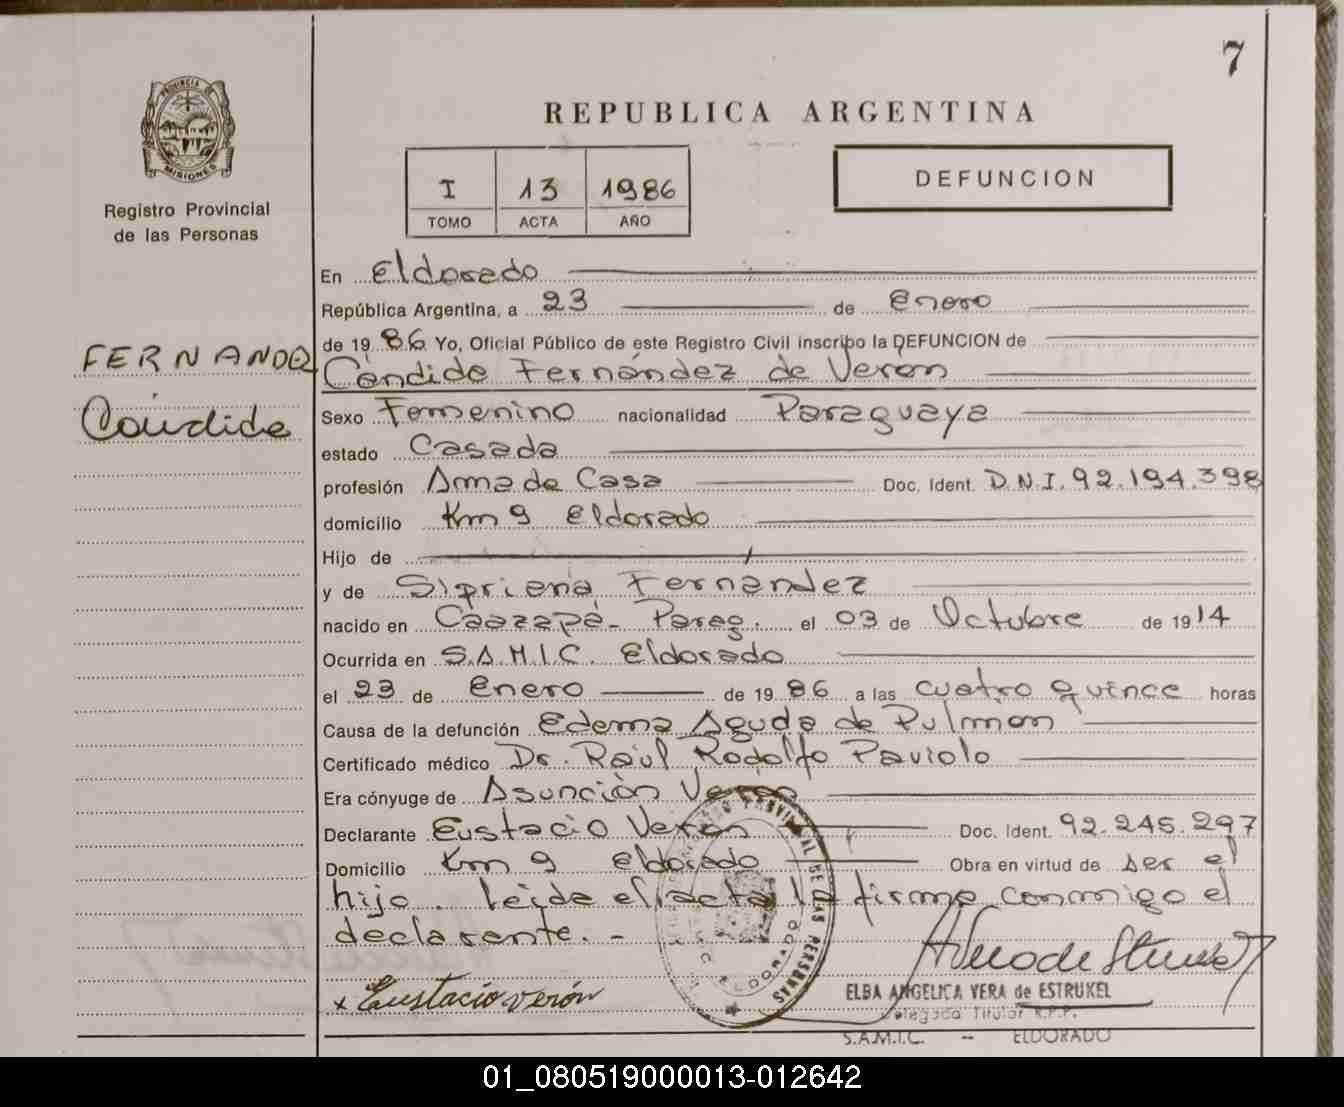 7
PROVINCIA DE
MISIONES
Registro Provincial
de las Personas
REPUBLICA ARGENTINA
I 13 1986
TOMO ACTA AÑO
DEFUNCION
FERNANDEZ
Cándida
En Eldorado
República Argentina, a 23 de Enero
de 1986 Yo, Oficial Público de este Registro Civil inscribo la DEFUNCION de
Cándida Fernández de Veron
Sexo Femenino nacionalidad Paraguaya
estado Casada
profesión Ama de Casa Doc. Ident. D.N.I. 92.194.398
domicilio Km 9 Eldorado
Hijo de
y de Sipriana Fernández
nacido en Caazapá - Parag. el 03 de Octubre de 1914
Ocurrida en S.A.M.I.C. Eldorado
el 23 de Enero de 1986 a las cuatro quince horas
Causa de la defunción Edema Agudo de Pulmón
Certificado médico Dr. Raúl Rodolfo Paviolo
Era cónyuge de Asunción Veron
Declarante Eustacio Veron Doc. Ident. 92.245.297
Domicilio Km 9 Eldorado Obra en virtud de ser el
hijo. leida el acta la firma conmigo el
declarante. -
x Eustacio verón
ELBA ANGELICA VERA de ESTRUKEL
Delegada Titular R.P.P.
S.A.M.I.C. -- ELDORADO
PROVINCIAL DE LAS PERSONAS
ELDORADO
01_080519000013-012642